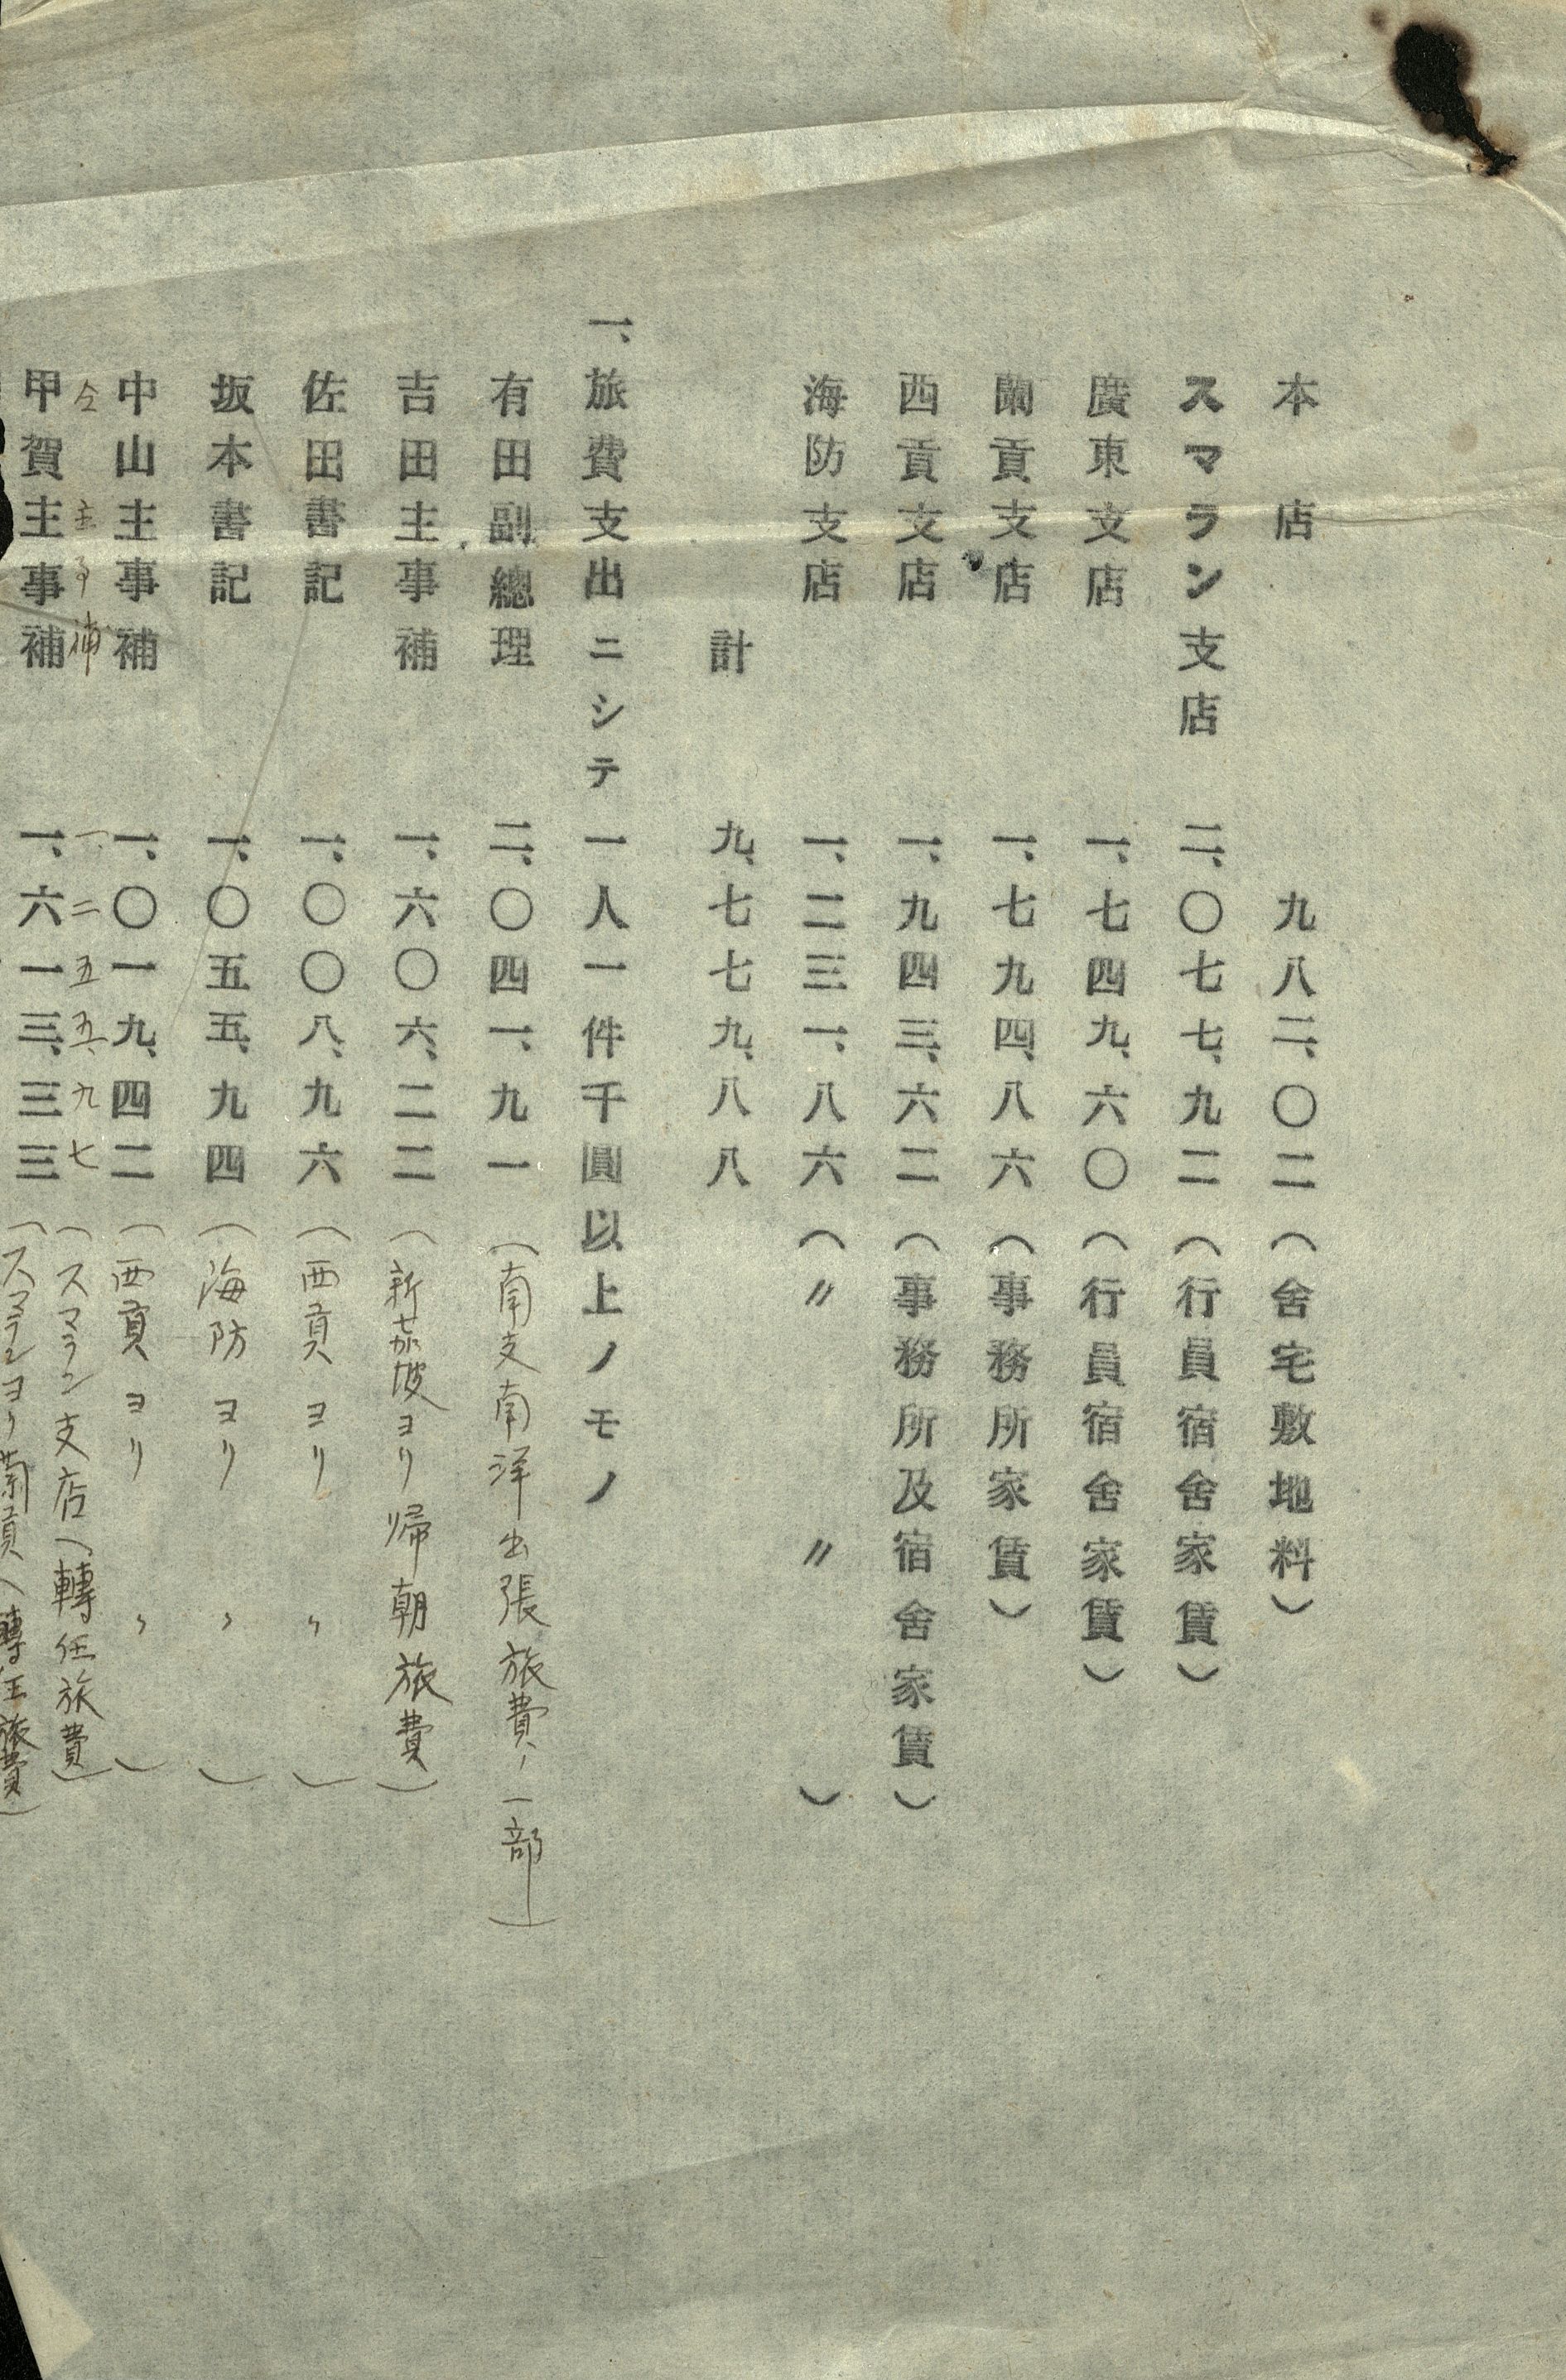 本店 九八二、〇二(舍宅敷地料)
スマラン支店 二、〇七七、九二(行員宿舍家賃)
廣東支店 一、七四九、六〇(行員宿舍家賃)
蘭貢支店 一、七九四、八六(事務所家賃)
西貢支店 一、九四三、六二(事務所及宿舍家賃)
海防支店 一、二三一、八六(〃 〃)
計 九、七七九、八八
一、旅費支出ニシテ一人一件千圓以上ノモノ
有田副總理 二、〇四一、九一(南支南洋出張旅費ノ一部)
吉田主事補 一、六〇六、二二(新嘉坡ヨリ帰朝旅費)
佐田書記 一、〇〇八、九六(西貢ヨリ 〃)
坂本書記 一、〇五五、九四(海防ヨリ 〃)
中山主事補 一、〇一九、四二(西貢ヨリ 〃)
仝主事補 一、二五五、九七(スマラン支店ヘ轉任旅費)
甲賀主事補 一、六一三、三三(スマランヨリ蘭貢ヘ轉任旅費)